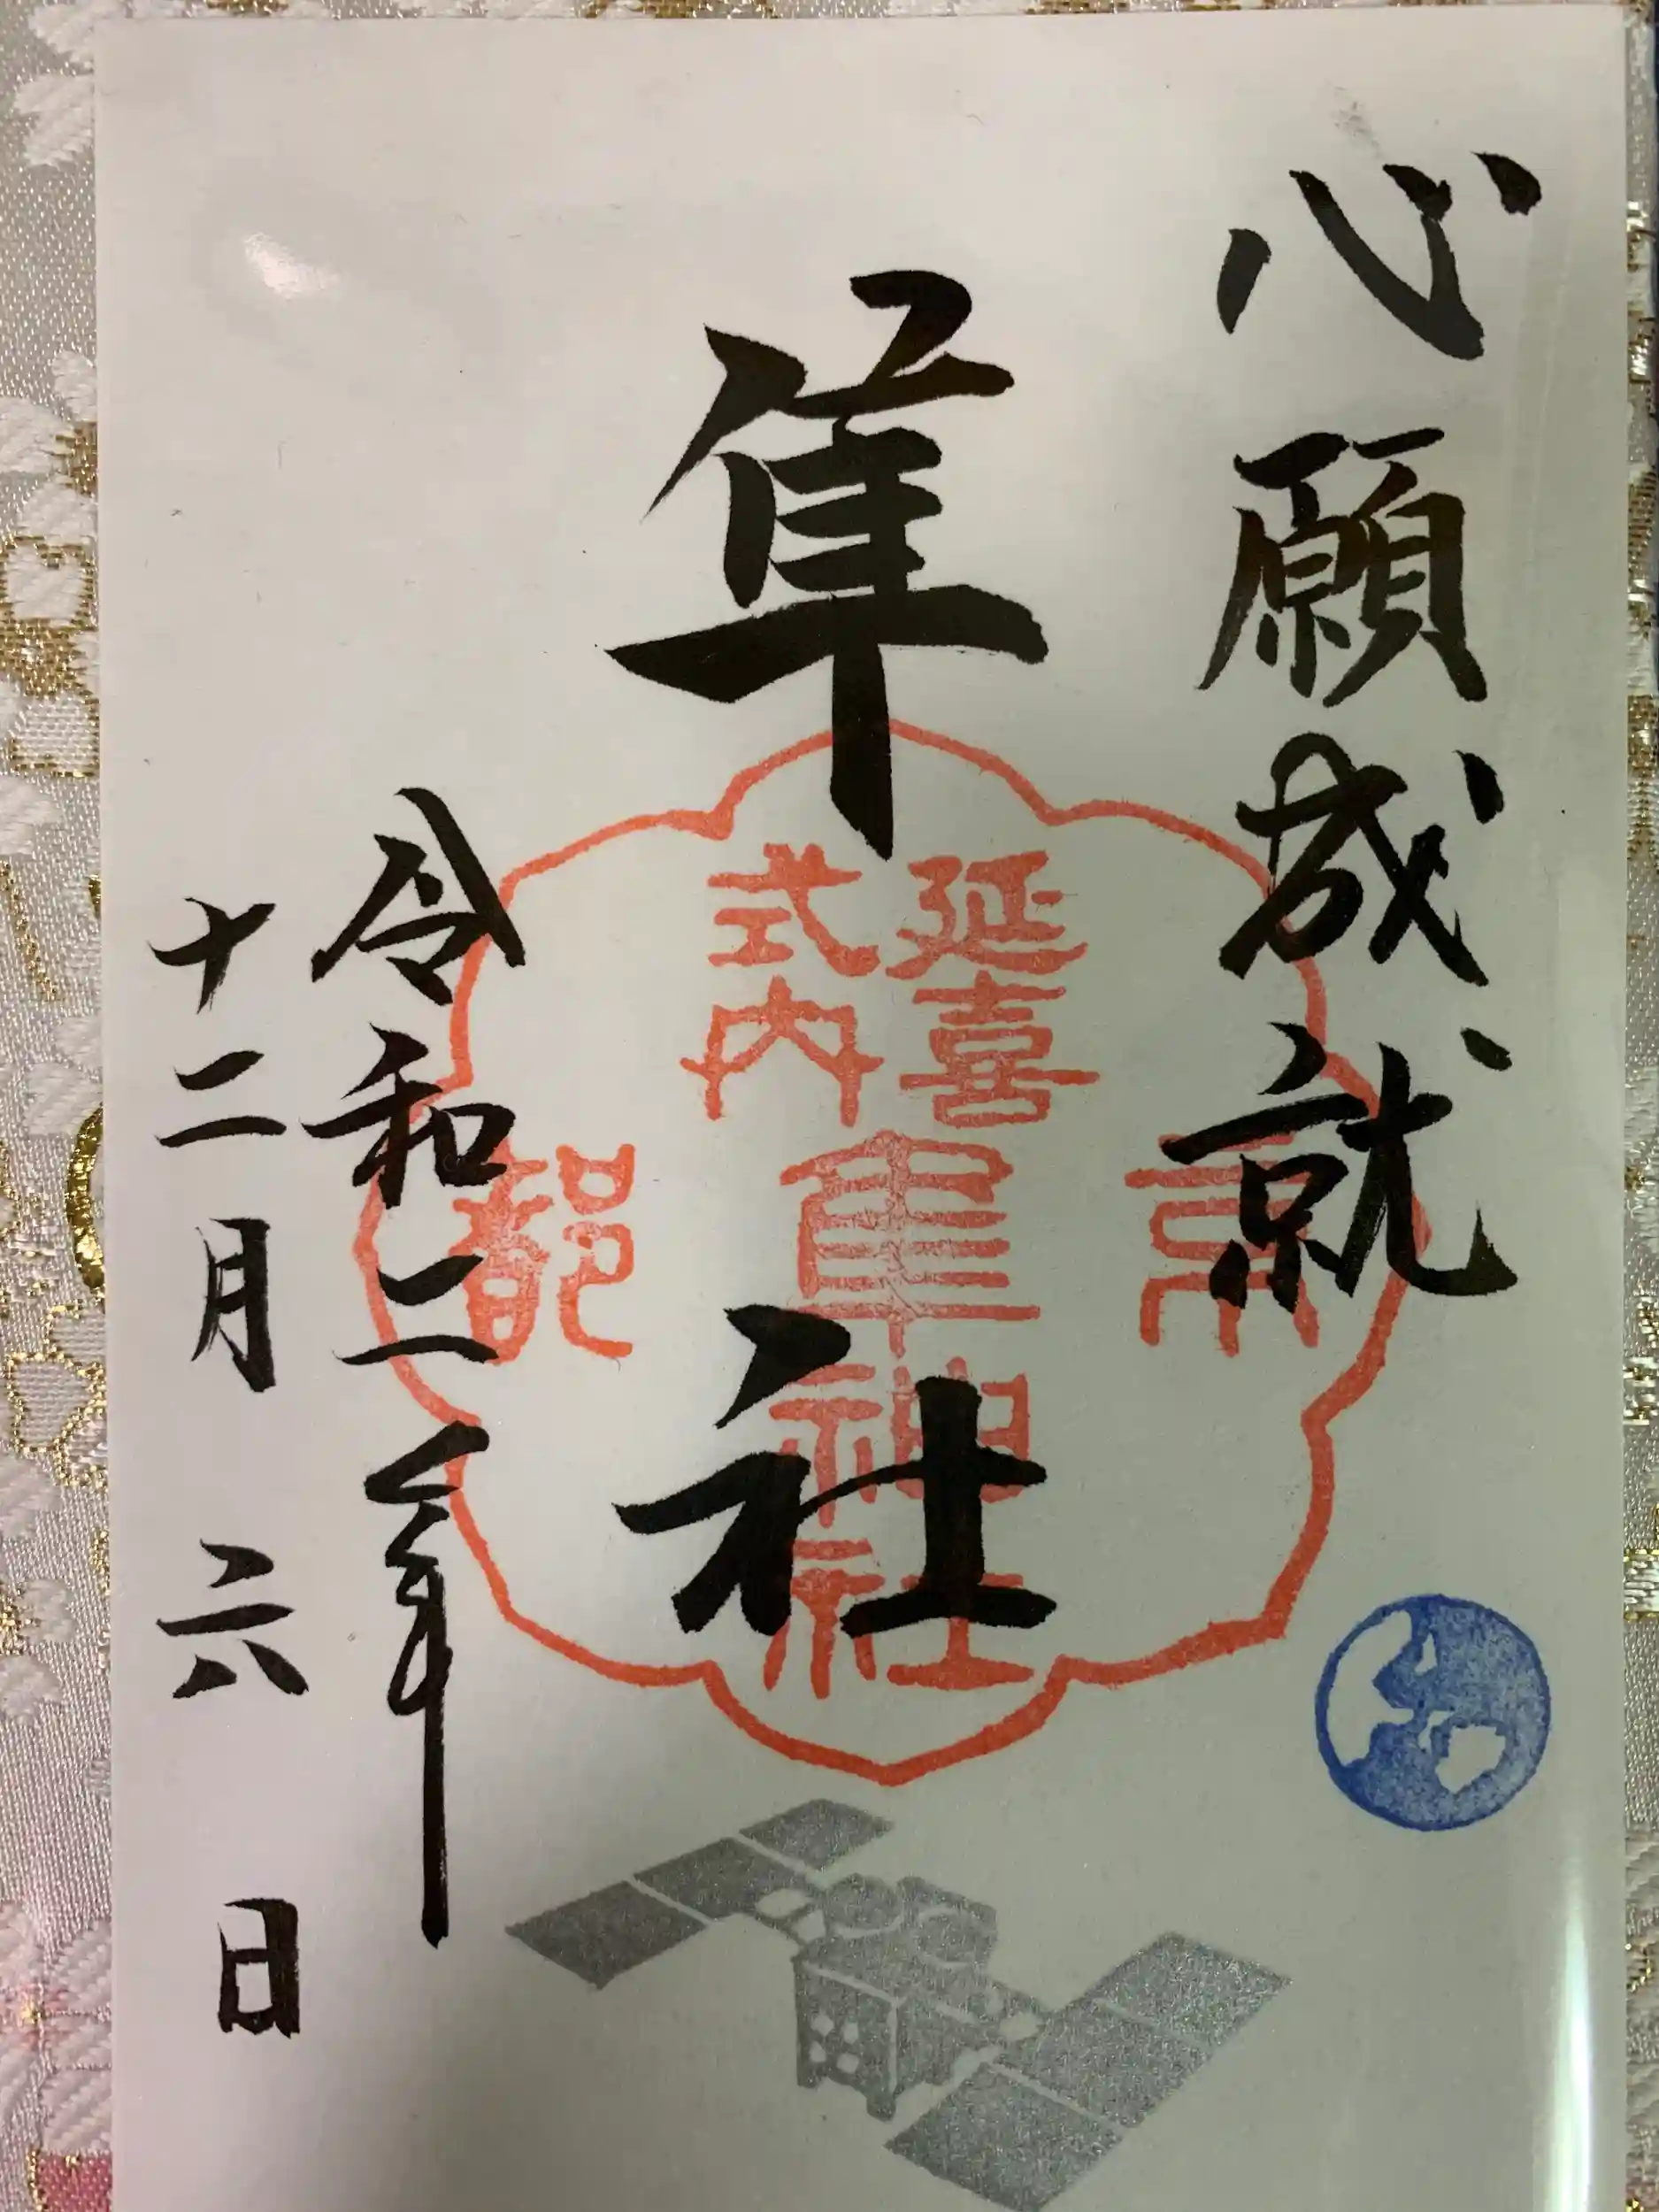 心願成就
隼社
令和二年
十二月六日
延喜
式内
隼神社
京
都